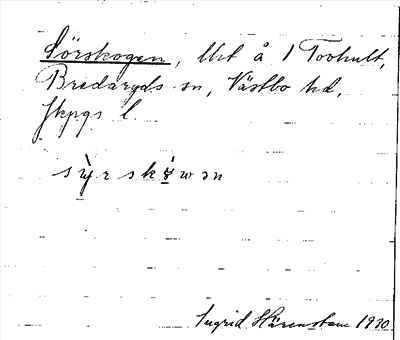 Sörskogen, Utt å 1 Tovhult,
Bredaryds sn, Västbo hd,
Jkpgs l.
s y̖ r s k ɯ́ w ə n
Ingrid Härenstam 1930